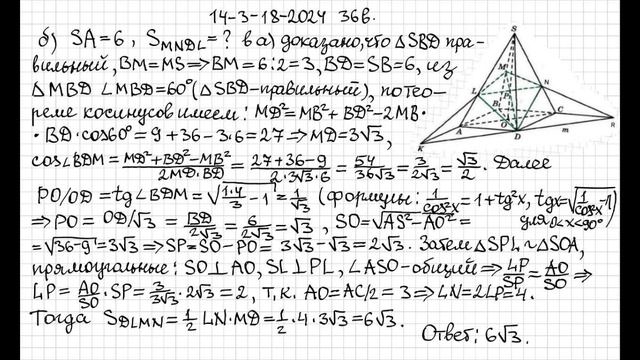 14-3-18-2024 36в.
б) SA=6, S_MNDL=? в а) доказано, что △SBD пра-
вильный, BM=MS⇒BM=6:2=3, BD=SB=6, из
△MBD ∠MBD=60°(△SBD-правильный), по тео-
реме косинусов имеем: MD²=MB²+BD²-2MB·
·BD·cos60°=9+36-3·6=27⇒MD=3√3,
cos∠BDM=(MD²+BD²-MB²)/(2MD·BD)=(27+36-9)/(2·3√3·6)=54/(36√3)=3/(2√3)=√3/2. Далее
PO/OD=tg∠BDM=√(1·4/3-1)=1/√3 (формулы: 1/cos²x=1+tg²x, tgx=√(1/cos²x-1)
⇒PO=OD/√3=BD/(2√3)=6/(2√3)=√3, SO=√(AS²-AO²)= для 0<x<90°)
=√(36-9)=3√3⇒SP=SO-PO=3√3-√3=2√3. Затем △SPL∼△SOA,
прямоугольные: SO⊥AO, SL⊥PL, ∠ASO-общий⇒LP/SP=AO/SO⇒
LP=AO/SO·SP=3/(3√3)·2√3=2, т.к. AO=AC/2=3⇒LN=2LP=4.
Тогда S_DLMN=1/2 LN·MD=1/2·4·3√3=6√3.
Ответ: 6√3.
S
M
N
L
P
B
C
A
O
D
K
m
R